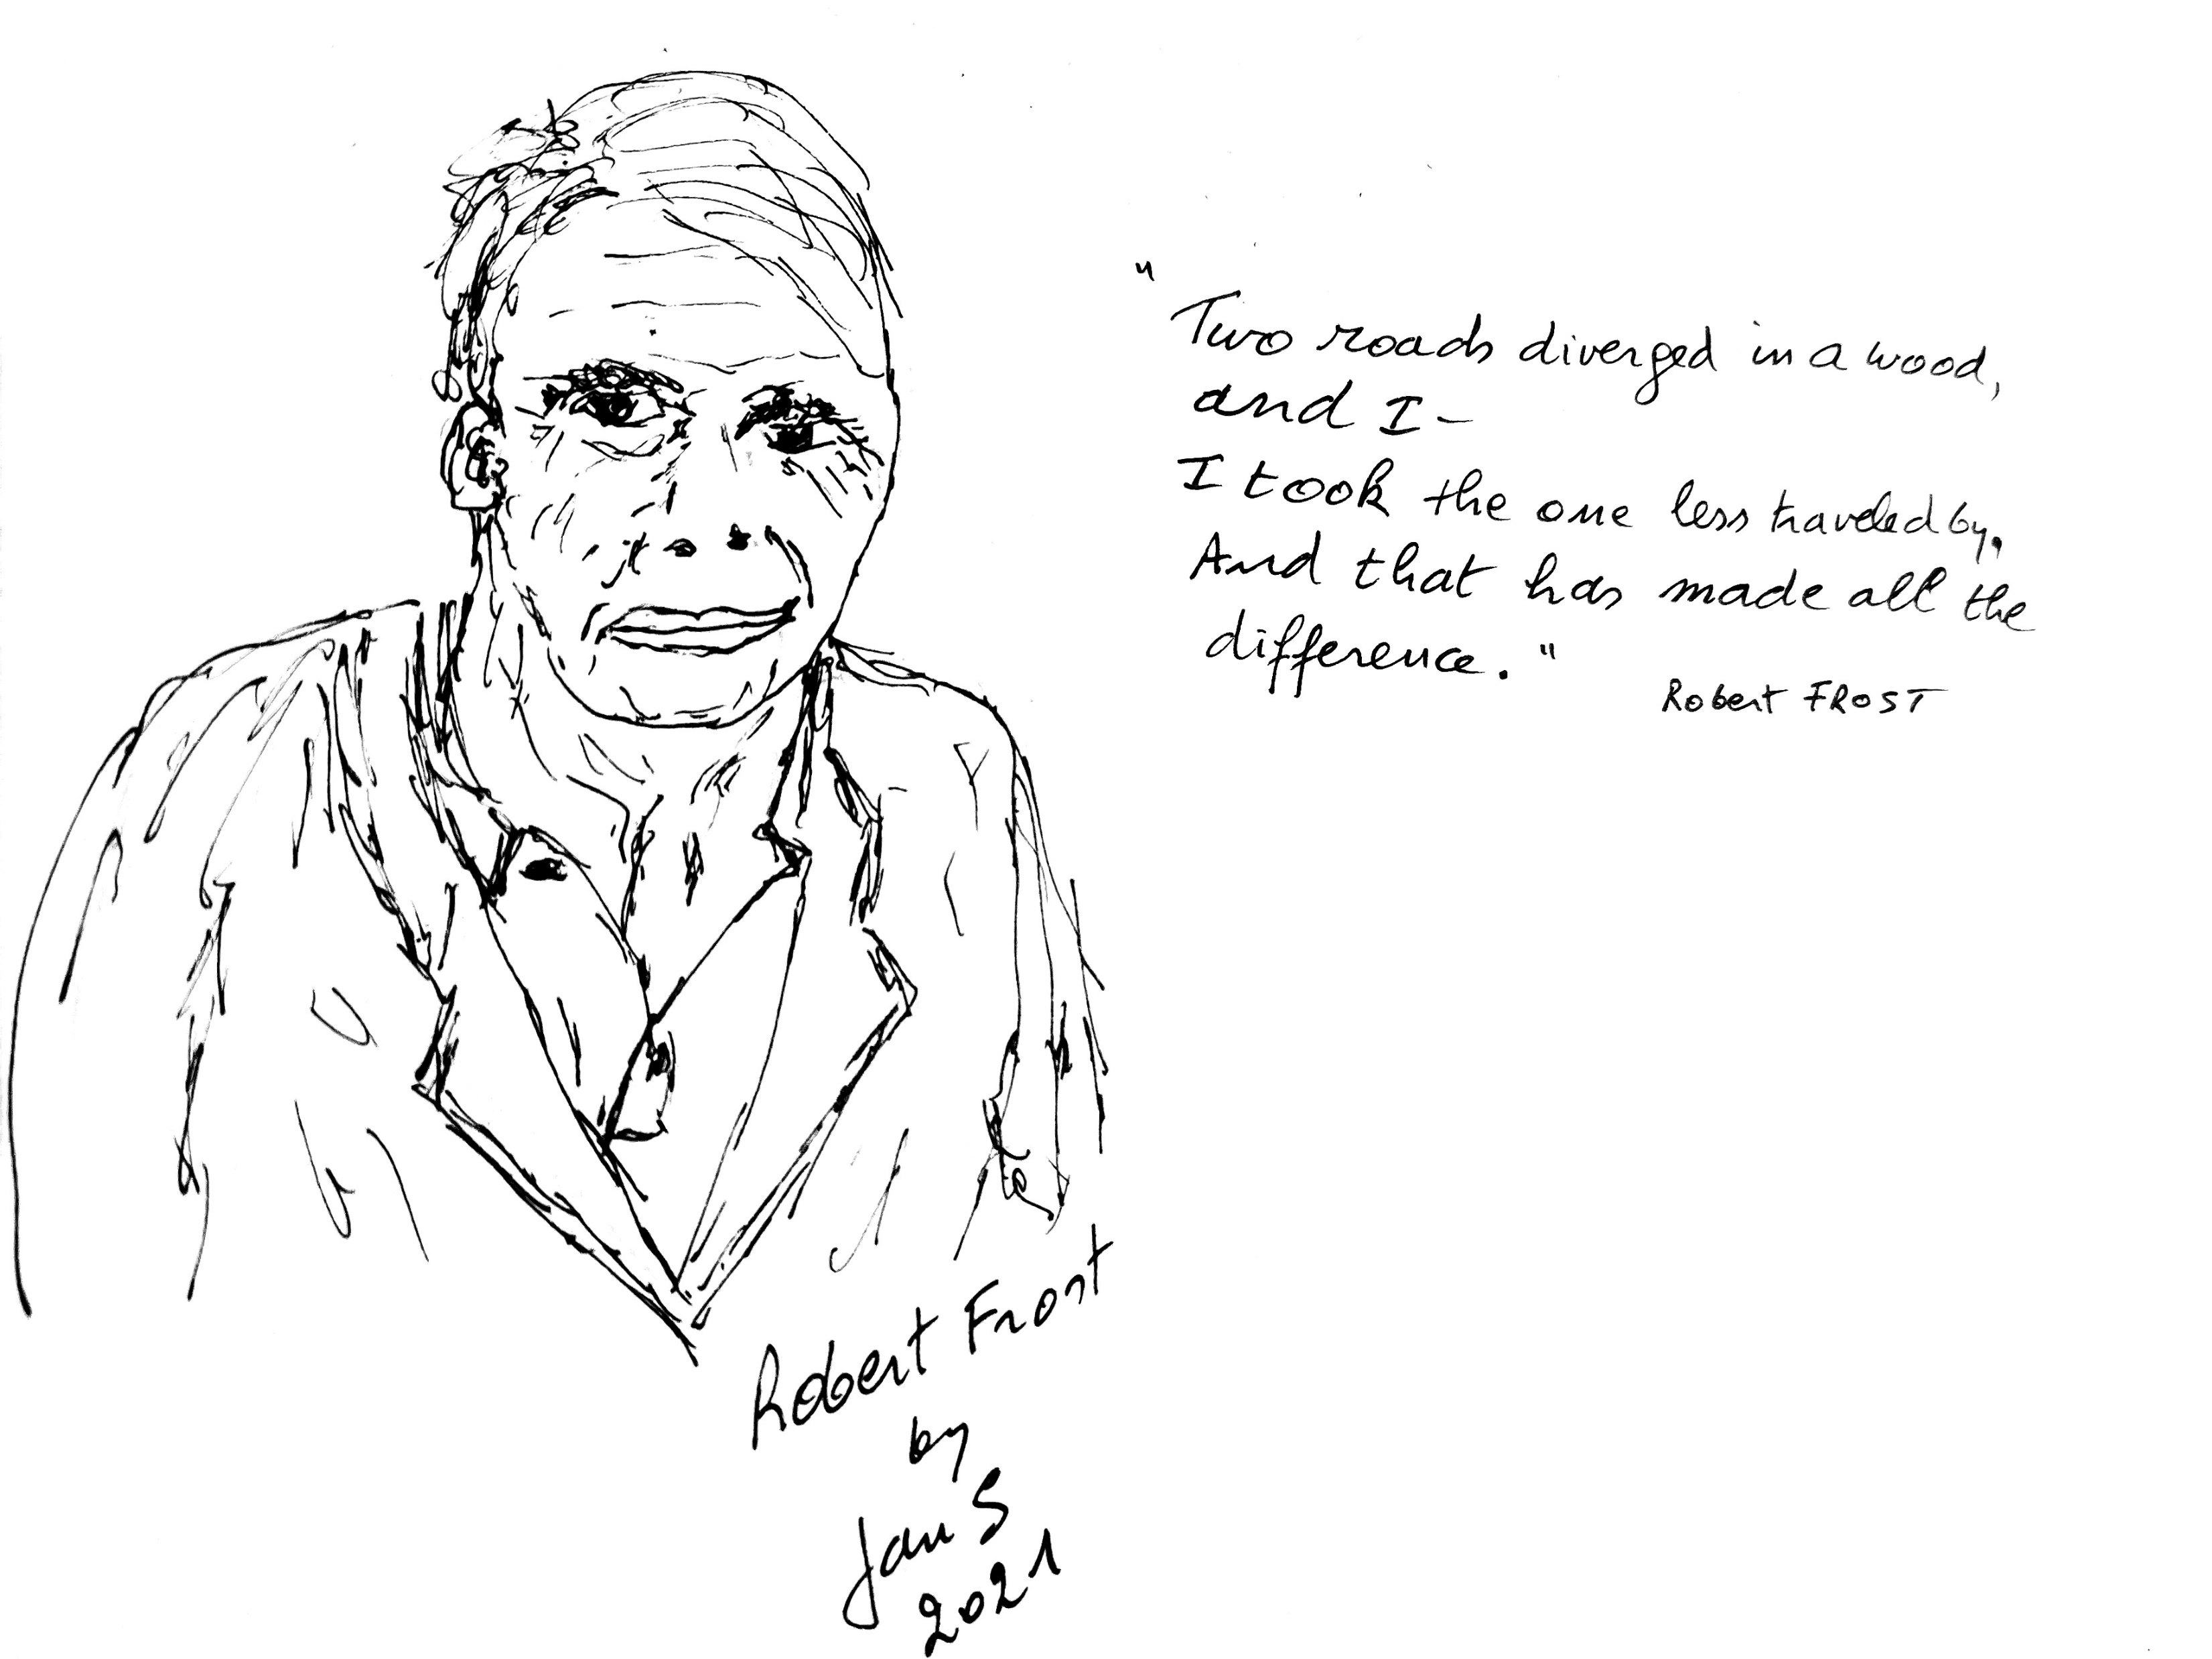 "Two roads diverged in a wood,
and I-
I took the one less traveled by,
And that has made all the
difference."
Robert FROST
Robert Frost
by
Jan S
2021